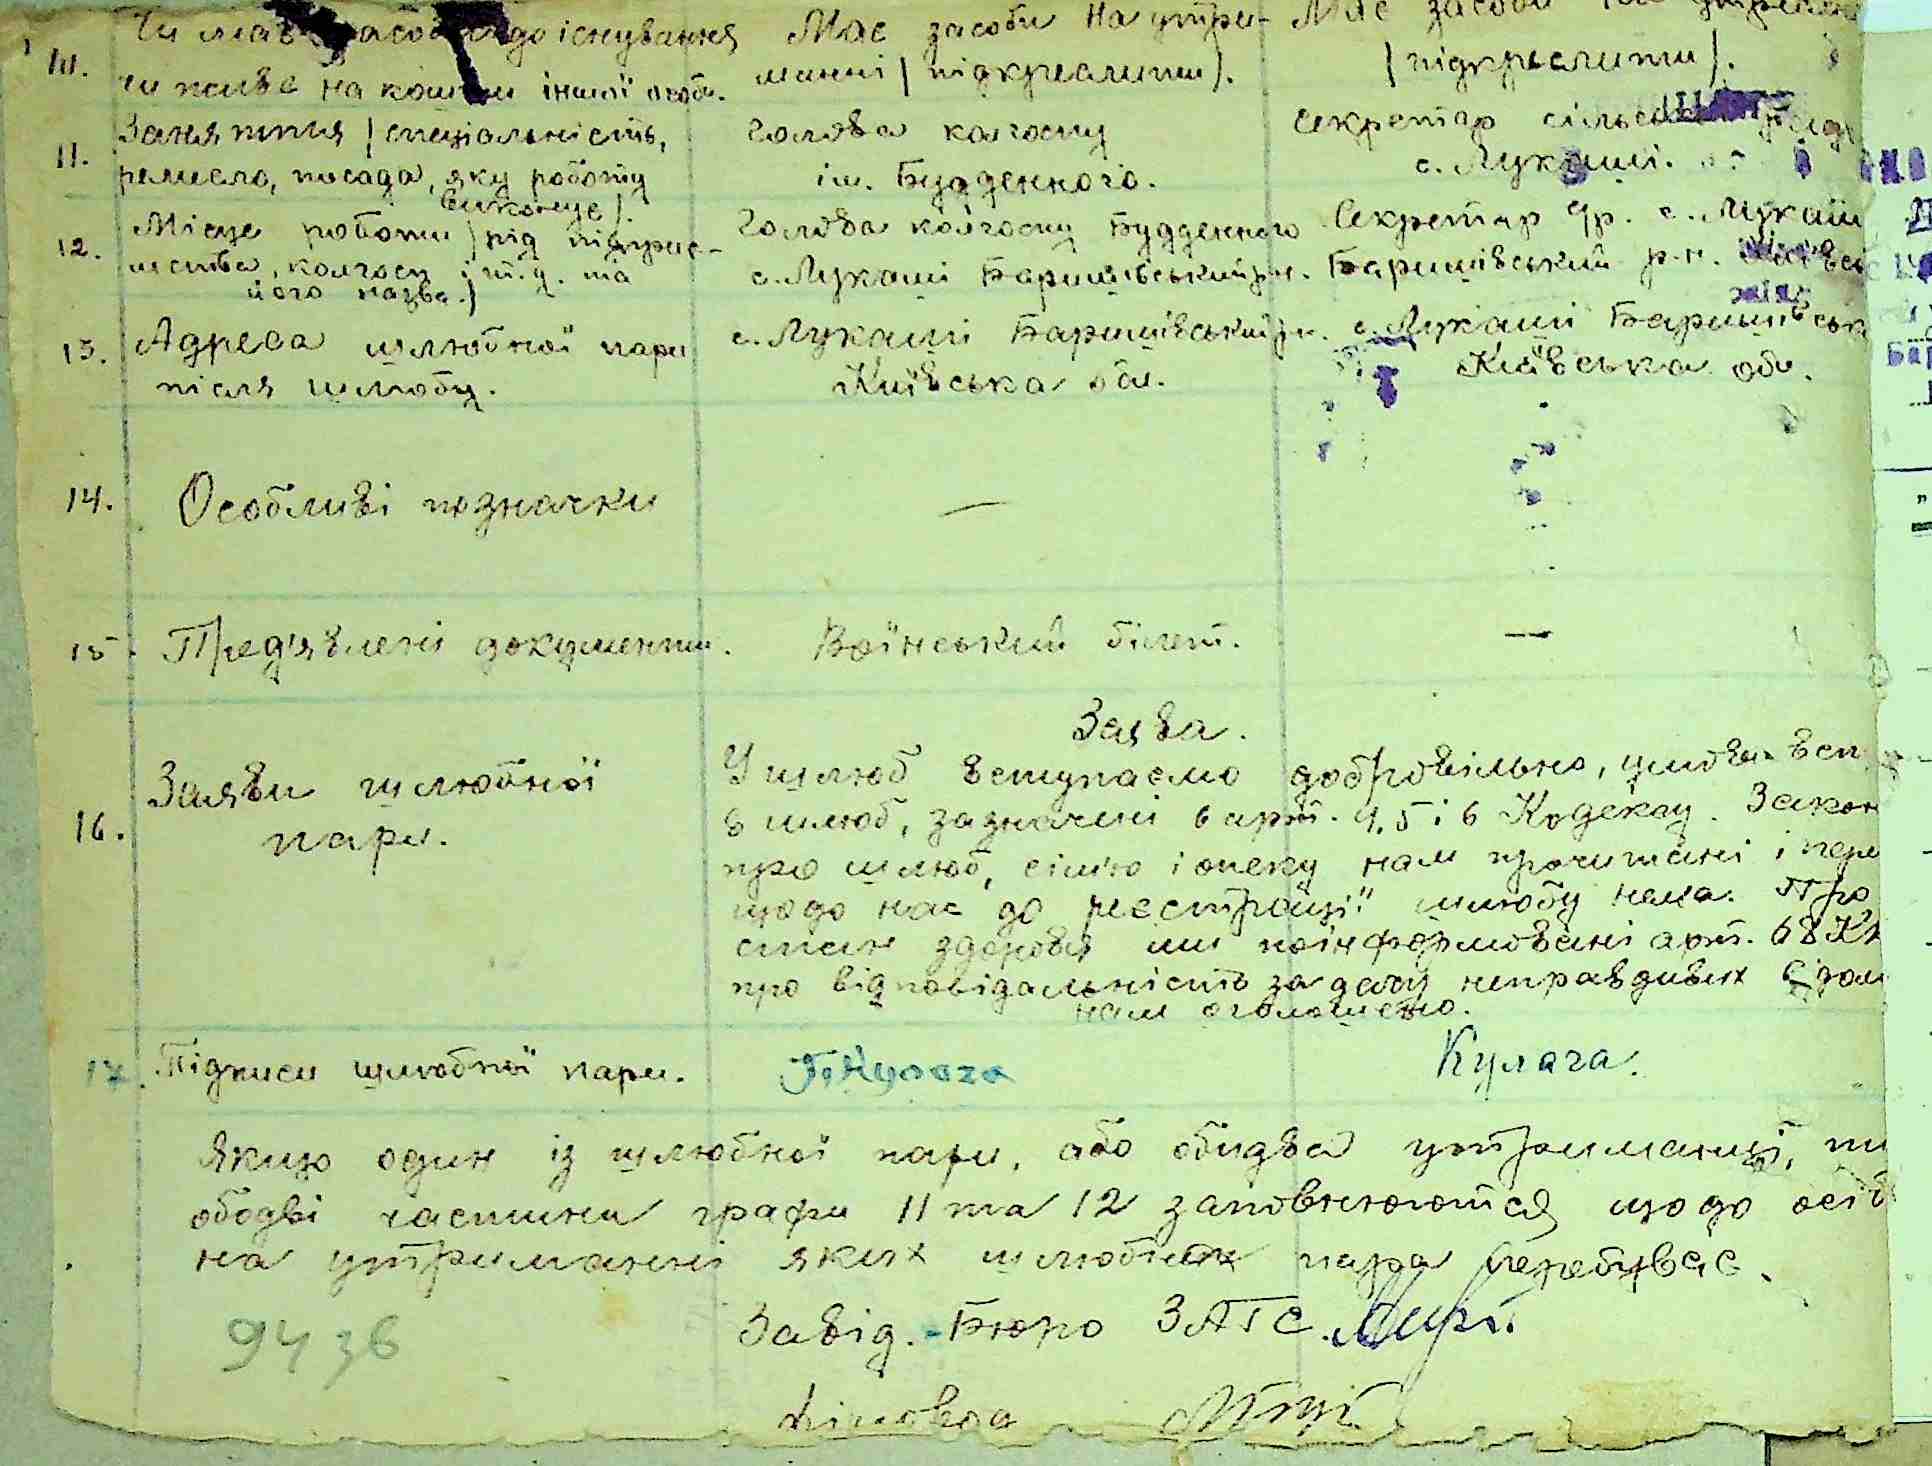 10. Чи має засоби до існування
чи живе на кошти іншої особи.
Має засоби На утри-
манні / підкреслити).
Має засоби На утриман
/ підкреслити/.
11. Заняття / спеціальність,
ремесло, посада, яку роботу
виконує/.
Голова колгоспу
ім. Будденного.
Секретар сільської
с. Лукаші.
12. Місце роботи / рід підприє-
мства, колгосп і т.д. та
його назва./
Голова колгоспу Будденного
с. Лукаші Баришівський р-н.
Секретар с. Лукаші
Баришівський р-н.
13. Адреса шлюбної пари
після шлюбу.
с. Лукаші Баришівський р-н.
Київська обл.
с. Лукаші Баришівськ
Київська обл.
14. Особливі позначки
—
15. Пред'явлені документи.
Воїнський білет.
—
16. Заяви шлюбної
пари.
Заява.
У шлюб вступаємо добровільно, умови вст
в шлюб, зазначені в арт. 4, 5 і 6 Кодексу. Закон
про шлюб, сім'ю і опеку нам прочитані і пере
щодо нас до реєстрації шлюбу нема. Про
стан здоров'я ми поінформовані арт. 68 КК
про відповідальність за дачу неправдивих відом
нам оголошено.
17. Підписи шлюбної пари.
Кулага
Кулага.
Якщо один із шлюбної пари, або обидва утриманці, то
обидві частини графи 11 та 12 заповнюються щодо осіб
на утриманні яких шлюбна пара перебуває.
94 зв
Завід. Бюро ЗАГС.
Діловод